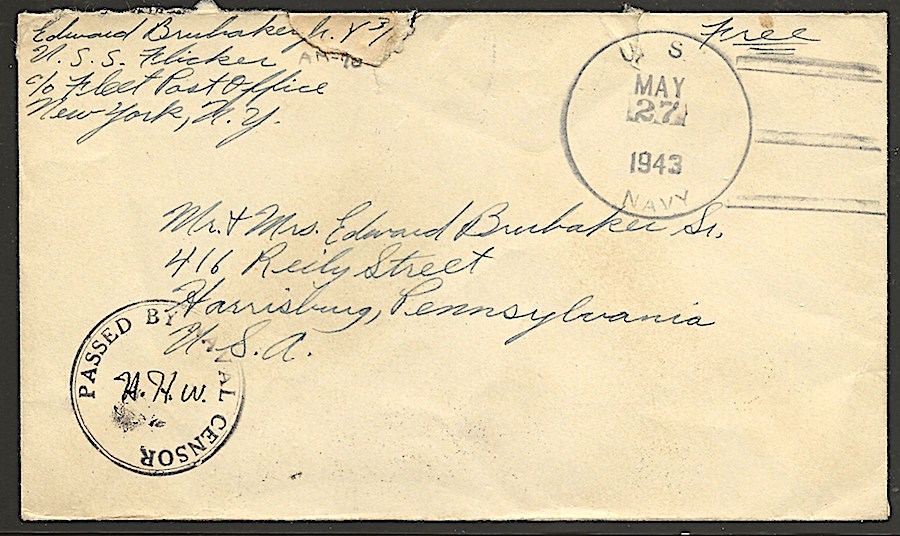 Edward Brubaker Jr. Y3/
U.S.S. Flicker
c/o Fleet Post Office
New York, N.Y.
AM-70
Free
U. S.
MAY
27
1943
NAVY
Mr. & Mrs. Edward Brubaker Sr.
416 Reily Street
Harrisburg, Pennsylvania
U.S.A.
PASSED BY NAVAL CENSOR
H.H.W.